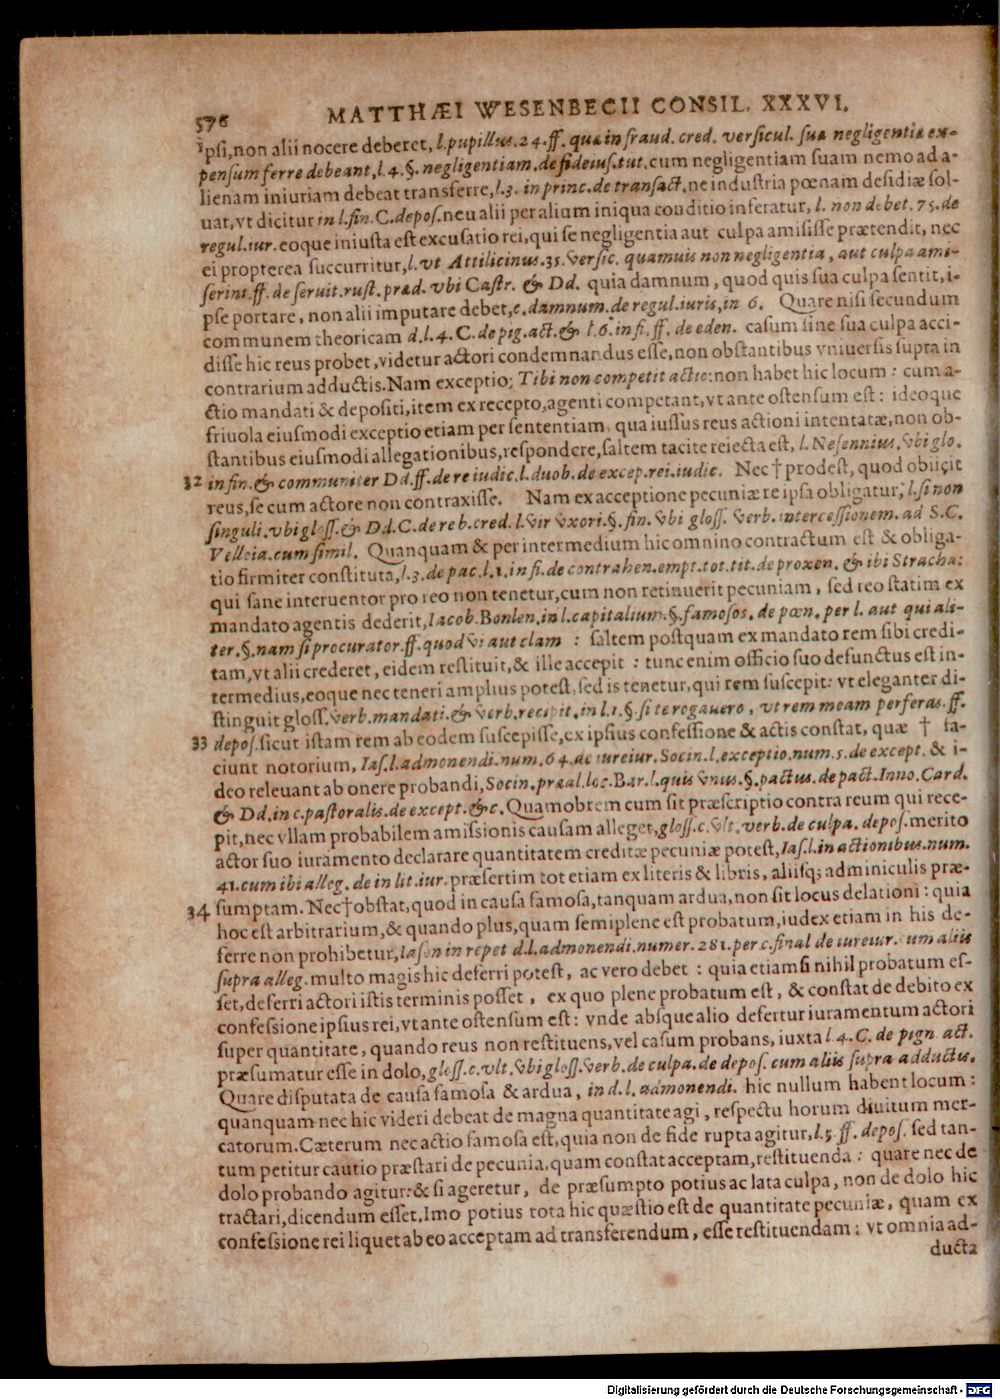 576 MATTHÆI WESENBECII CONSIL. XXXVI.
ipsi, non alii nocere deberet, l. pupillus. 24. ff. quæ in fraud. cred. versicul. suæ negligentiæ ex-
pensum ferre debeant, l. 4. §. negligentiam. de fideius. tut. cum negligentiam suam nemo ad a-
lienam iniuriam debeat transferre, l. 3. in princ. de transact. ne industria pœnam desidiæ sol-
uat, vt dicitur in l. fin. C. depos. neu alii per alium iniqua conditio inferatur, l. non debet. 75. de
regul. iur. eoque iniusta est excusatio rei, qui se negligentia aut culpa amisisse prætendit, nec
ei propterea succurritur, l. vt Attilicinus. 35. versic. quamuis non negligentia, aut culpa ami-
serint. ff. de seruit. rust. præd. vbi Castr. & Dd. quia damnum, quod quis sua culpa sentit, i-
pse portare, non alii imputare debet, c. damnum. de regul. iuris, in 6. Quare nisi secundum
communem theoricam d. l. 4. C. de pig. act. & l. 6. in fi. ff. de eden. casum sine sua culpa acci-
disse hic reus probet, videtur actori condemnandus esse, non obstantibus vniuersis supra in
contrarium adductis. Nam exceptio; Tibi non competit actio: non habet hic locum: cum a-
ctio mandati & depositi, item ex recepto, agenti competant, vt ante ostensum est: ideoque
friuola eiusmodi exceptio etiam per sententiam, qua iussus reus actioni intentatæ, non ob-
stantibus eiusmodi allegationibus, respondere, saltem tacite reiecta est, l. Nesennius, vbi glo.
32 in fin. & communiter Dd. ff. de re iudic. l. duob. de excep. rei. iudic. Nec † prodest, quod obiicit
reus, se cum actore non contraxisse. Nam ex acceptione pecuniæ re ipsa obligatur, l. si non
singuli. vbi gloss. & Dd. C. de reb. cred. l. vir vxori. §. fin. vbi gloss. verb. intercessionem. ad S.C.
Velleia. cum simil. Quanquam & per intermedium hic omnino contractum est & obliga-
tio firmiter constituta, l. 3. de pac. l. 1. in fi. de contrahen. empt. tot. tit. de proxen. & ibi Stracha:
qui sane interuentor pro reo non tenetur, cum non retinuerit pecuniam, sed reo statim ex
mandato agentis dederit, Iacob. Bonlen. in l. capitalium. §. famosos. de pœn. per l. aut qui ali-
ter. §. nam si procurator. ff. quod vi aut clam: saltem postquam ex mandato rem sibi credi-
tam, vt alii crederet, eidem restituit, & ille accepit: tunc enim officio suo defunctus est in-
termedius, eoque nec teneri amplius potest, sed is tenetur, qui rem suscepit: vt eleganter di-
stinguit gloss. verb. mandati. & verb. recipit. in l. 1. §. si te rogauero, vt rem meam perferas. ff.
33 depos. sicut istam rem ab eodem suscepisse, ex ipsius confessione & actis constat, quæ † fa-
ciunt notorium, Ias. l. admonendi. num. 64. de iureiur. Socin. l. exceptio. num. 5. de except. & i-
deo releuant ab onere probandi, Socin. præal. loc. Bar. l. quis vnus. §. pactus. de pact. Inno. Card.
& Dd. in c. pastoralis. de except. &c. Quamobrem cum sit præscriptio contra reum qui rece-
pit, nec vllam probabilem amissionis causam alleget, gloss. c. vlt. verb. de culpa. depos. merito
actor suo iuramento declarare quantitatem creditæ pecuniæ potest, Ias. l. in actionibus. num.
41. cum ibi alleg. de in lit. iur. præsertim tot etiam ex literis & libris, aliisq; adminiculis præ-
34 sumptam. Nec † obstat, quod in causa famosa, tanquam ardua, non sit locus delationi: quia
hoc est arbitrarium, & quando plus, quam semiplene est probatum, iudex etiam in his de-
ferre non prohibetur, Iason in repet d. l. admonendi. numer. 281. per c. final de iureiur. cum aliis
supra alleg. multo magis hic deferri potest, ac vero debet: quia etiamsi nihil probatum es-
set, deferri actori istis terminis posset, ex quo plene probatum est, & constat de debito ex
confessione ipsius rei, vt ante ostensum est: vnde absque alio defertur iuramentum actori
super quantitate, quando reus non restituens, vel casum probans, iuxta l. 4. C. de pign. act.
præsumatur esse in dolo, gloss. c. vlt. vbi gloss. verb. de culpa. de depos. cum aliis supra adductis.
Quare disputata de causa famosa & ardua, in d. l. admonendi. hic nullum habent locum:
quanquam nec hic videri debeat de magna quantitate agi, respectu horum diuitum mer-
catorum. Cæterum nec actio famosa est, quia non de fide rupta agitur, l. 5. ff. depos. sed tan-
tum petitur cautio præstari de pecunia, quam constat acceptam, restituenda: quare nec de
dolo probando agitur: & si ageretur, de præsumpto potius ac lata culpa, non de dolo hic
tractari, dicendum esset, Imo potius tota hic quæstio est de quantitate pecuniæ, quam ex
confessione rei liquet ab eo acceptam ad transferendum, esse restituendam: vt omnia ad-
ducta
Digitalisierung gefördert durch die Deutsche Forschungsgemeinschaft - DFG